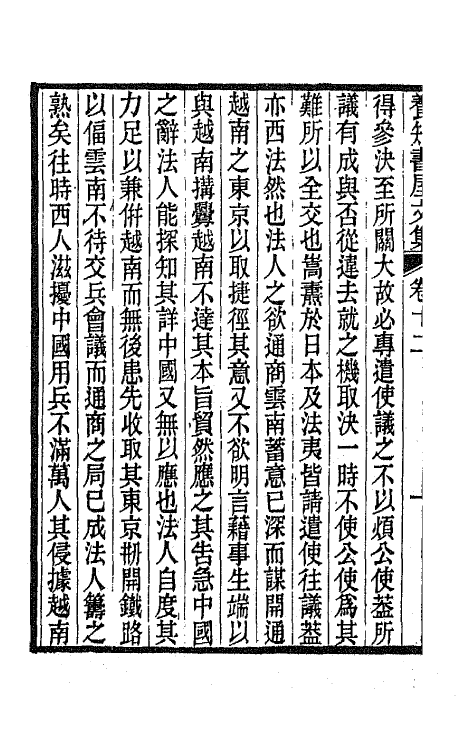 養知書屋文集 卷十二 一
得參決至所關大故必專遣使議之不以煩公使葢所
議有成與否從違去就之機取決一時不使公使爲其
難所以全交也嵩燾於日本及法夷皆請遣使往議葢
亦西法然也法人之欲通商雲南蓄意已深而謀開通
越南之東京以取捷徑其意又不欲明言藉事生端以
與越南搆釁越南不達其本旨貿然應之其告急中國
之辭法人能探知其詳中國又無以應也法人自度其
力足以兼倂越南而無後患先收取其東京剏開鐵路
以偪雲南不待交兵會議而通商之局已成法人籌之
熟矣往時西人滋擾中國用兵不滿萬人其侵據越南